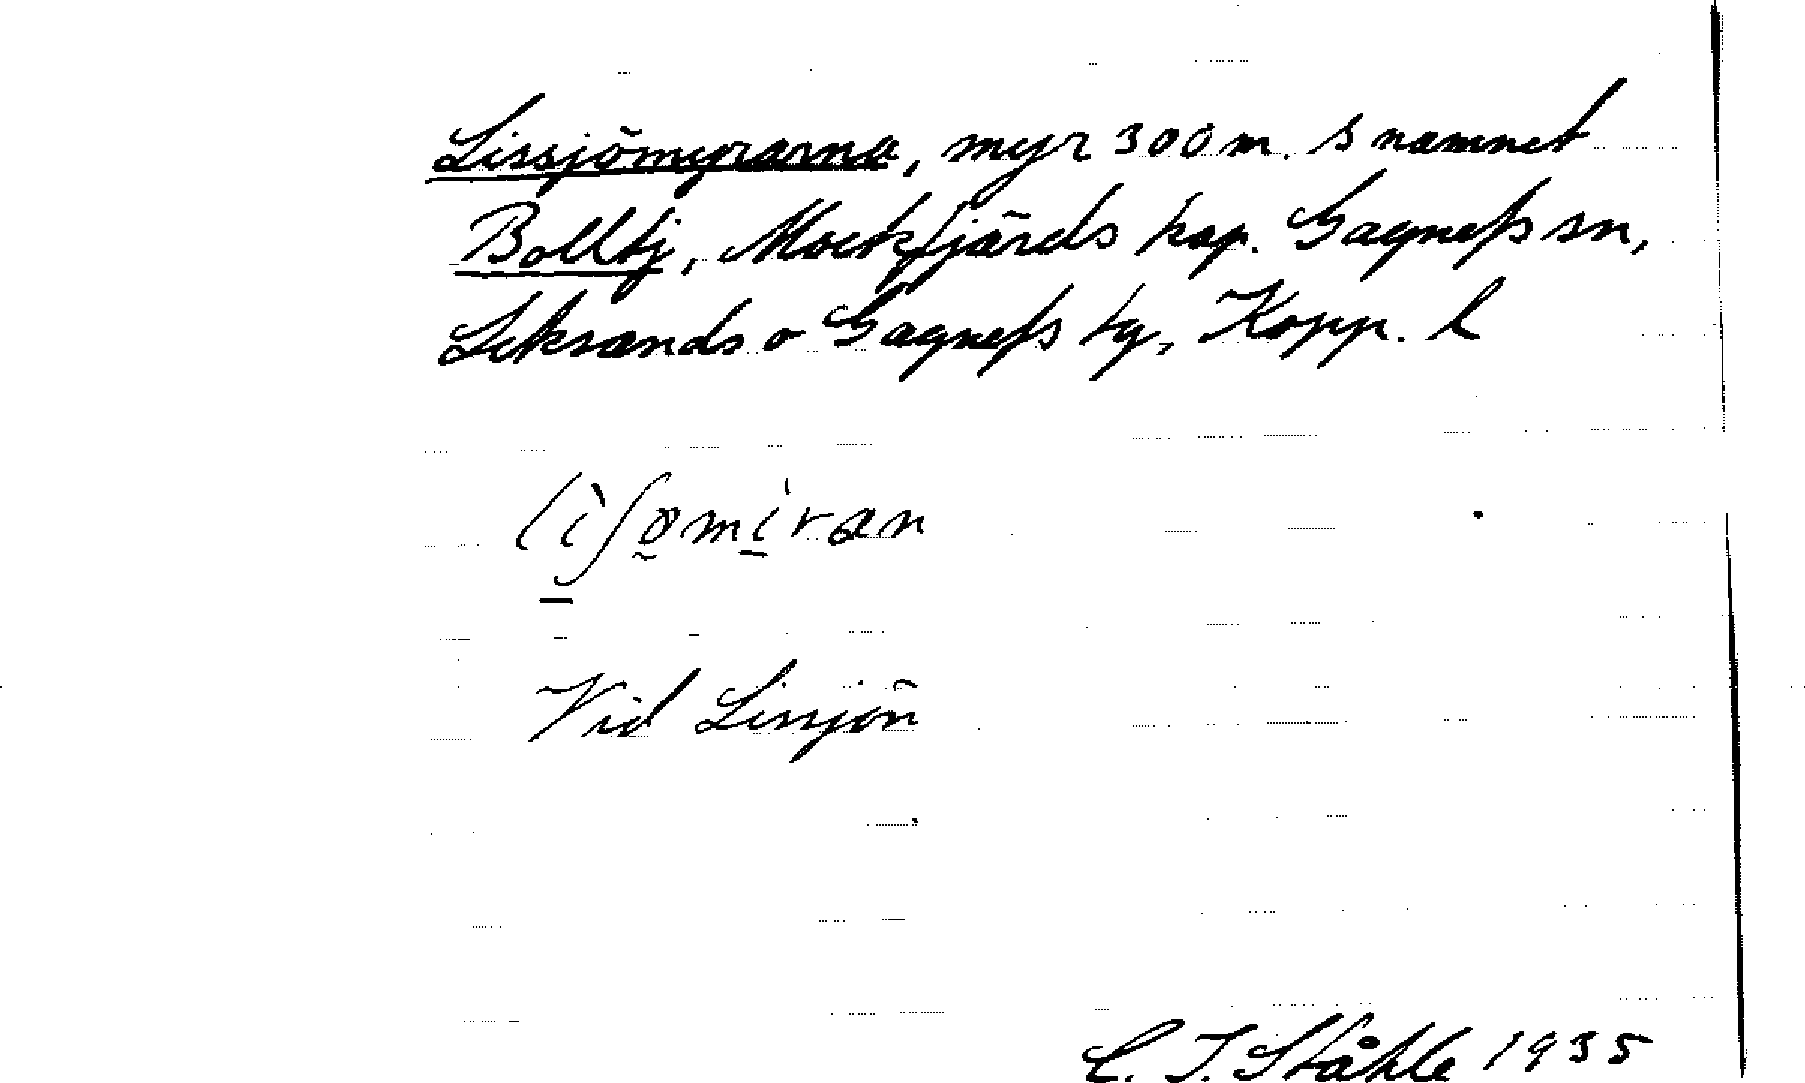 Lissjömyrarna, myr 300 m. S namnet
Bolltj, Mockfjärds kap. Gagnefs sn,
Leksands o Gagnefs tg, Kopp. l
Vid Lissjön
C. I. Ståhle 1935